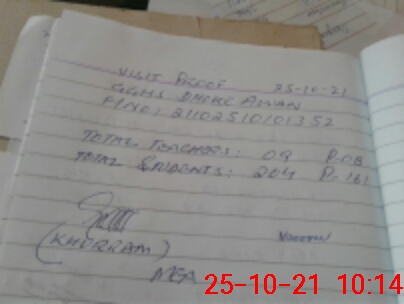 VISIT PROOF 25-10-21
GGHS DHOKE AWAN
TOTAL TEACHERS: 09 P-08
TOTAL STUDENTS: 204 P-161
(KHURRAM)
MEA
25-10-21 10:14